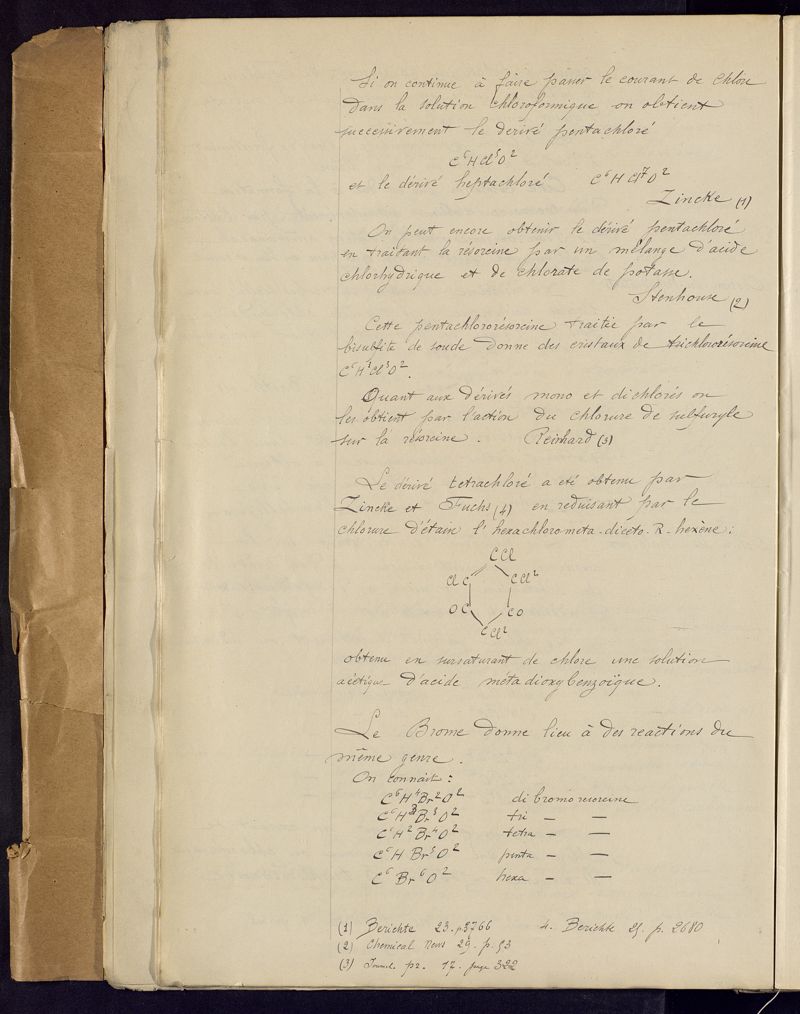 Si on continue à faire passer le courant de chlore
dans la solution chloroformique on obtient
successivement le derivé pentachloré
C⁶HCl⁵O²
et le dérivé heptachloré C⁶HCl⁷O²
Zincke (1)
On peut encore obtenir le dérivé pentachloré
en traitant la résorcine par un mélange d'acide
chlorhydrique et de chlorate de potasse.
Stenhouse (2)
Cette pentachlororésorcine traitée par le
bisulfite de soude donne des cristaux de trichlororésorcine
C⁶H³Cl³O².
Quant aux dérivés mono et dichlorés on
les obtient par l'action du chlorure de sulfuryle
sur la résorcine. Reinhard (3)
Le dérivé tetrachloré a été obtenu par
Zincke et Fuchs (4) en reduisant par le
chlorure d'étain l'hexachlorometa-diceto-R-hexène:
CCl
ClC CCl²
OC CO
CCl²
obtenu en sursaturant de chlore une solution
acétique d'acide métadioxybenzoïque.
Le Brome donne lieu à des reactions du
même genre.
On connait:
C⁶H⁴Br²O² di bromoresorcine
C⁶H³Br³O² tri — —
C⁶H²Br⁴O² tetra — —
C⁶HBr⁵O² penta — —
C⁶Br⁶O² hexa — —
(1) Berichte 23. p. 3766 4. Berichte 25. p. 2680
(2) Chemical News 29. p. 93
(3) Journ. pr. 17. page 322